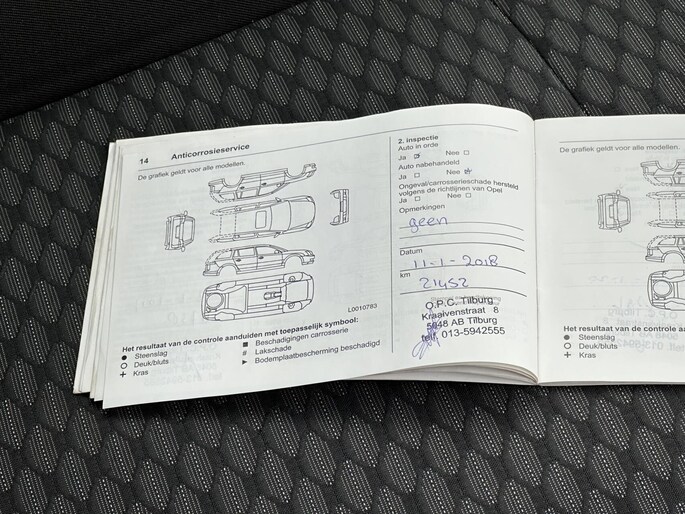 14 Anticorrosieservice
De grafiek geldt voor alle modellen.
L0010783
Het resultaat van de controle aanduiden met toepasselijk symbool:
● Steenslag
○ Deuk/bluts
+ Kras
■ Beschadigingen carrosserie
# Lakschade
► Bodemplaatbescherming beschadigd
2. inspectie
Auto in orde
Ja Nee
Auto nabehandeld
Ja Nee
Ongeval/carrosserieschade hersteld
volgens de richtlijnen van Opel
Ja Nee
Opmerkingen
geen
Datum
11-1-2018
km
21452
O.P.C. Tilburg
Kraaivenstraat 8
5048 AB Tilburg
telf. 013-5942555
De grafiek geldt voor alle
Het resultaat van de controle a
● Steenslag
○ Deuk/bluts
+ Kras